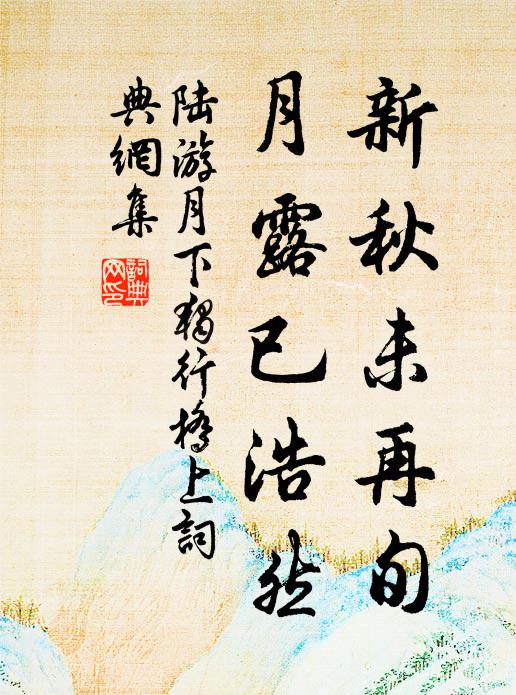 新秋未再旬
月露已浩然
陆游月下独行桥上詞
典網集
詞典
网印